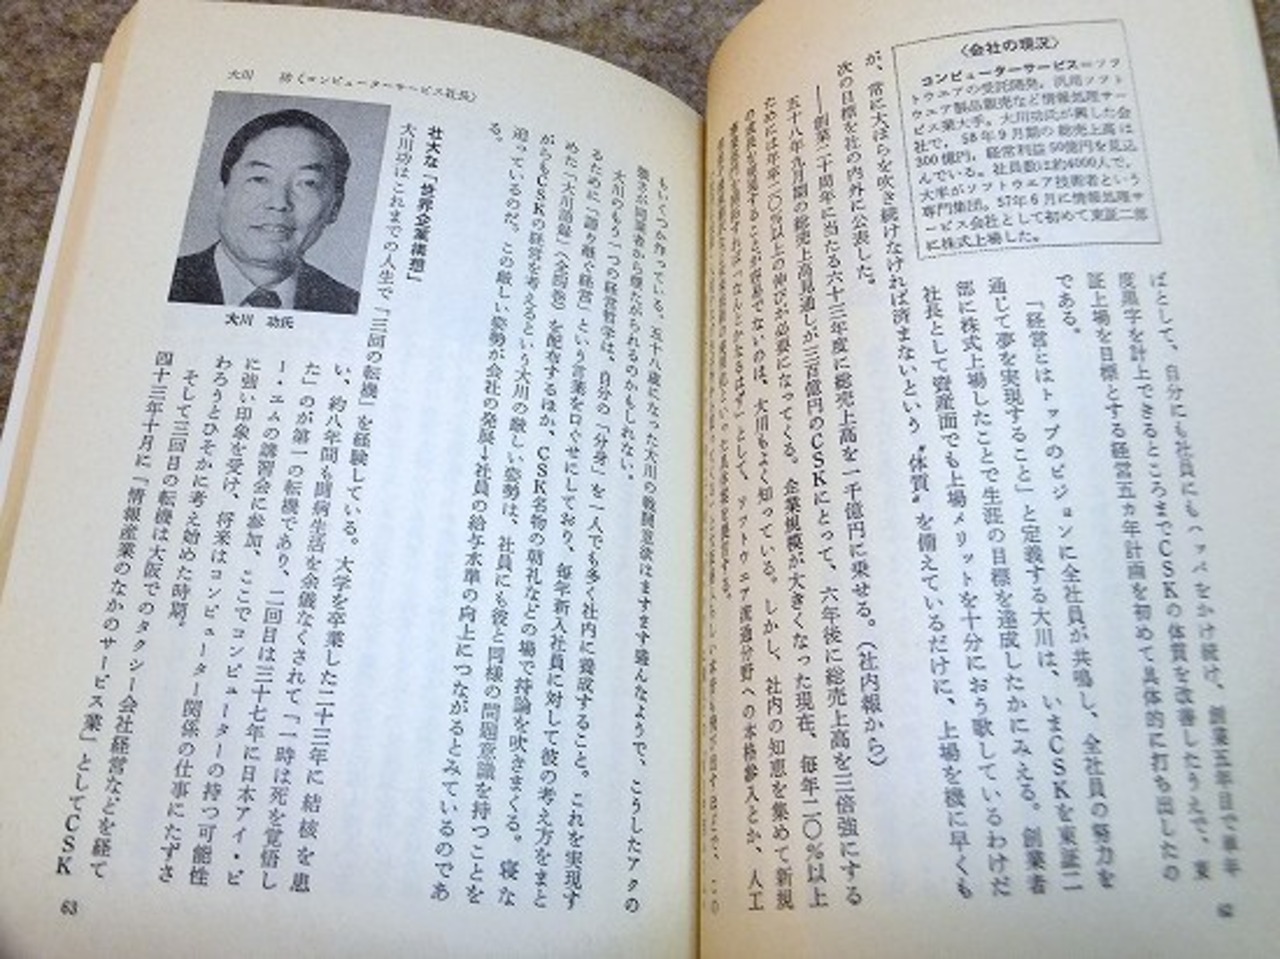 〈会社の現況〉
コンピューターサービス＝ソフ
トウエアの受託開発、汎用ソフト
ウエア製品販売など情報処理サー
ビス業大手。大川功氏が興した会
社で、58年9月期の総売上高は
300億円、経常利益50億円を見込
んでいる。社員数は約4000人で、
大半がソフトウエア技術者という
専門集団。57年6月に情報処理サ
ービス会社として初めて東証二部
に株式上場した。
ばとして、自分にも社員にもハッパをかけ続け、創業五年目で単年
度黒字を計上できるところまでCSKの体質を改善したうえで、東
証上場を目標とする経営五カ年計画を初めて具体的に打ち出したの
である。
「経営とはトップのビジョンに全社員が共鳴し、全社員の努力を
通じて夢を実現すること」と定義する大川は、いまCSKを東証二
部に株式上場したことで生涯の目標を達成したかにみえる。創業者
社長として資産面でも上場メリットを十分におう歌しているわけだ
が、常に大ぼらを吹き続けなければ済まないという〝体質〟を備えているだけに、上場を機に早くも
次の目標を社の内外に公表した。
――創業二十周年に当たる六十三年度に総売上高を一千億円に乗せる。（社内報から）
五十八年九月期の総売上高見通しが三百億円のCSKにとって、六年後に総売上高を三倍強にする
ためには年率二〇％以上の伸びが必要になってくる。企業規模が大きくなった現在、毎年二〇％以上
の成長が達成することが容易でないのは、大川もよく知っている。しかし、社内の知恵を集めて新規
ソフトウエア流通分野への本格参入とか、人工
62
大川　功〈コンピューターサービス社長〉
もいくつか作っている。五十八歳になった大川の戦闘意欲はますます盛んなようで、こうしたアクの
強さが同業者から煙たがられるのかもしれない。
大川のもう一つの経営哲学は、自分の「分身」を一人でも多く社内に養成すること。これを実現す
るために「語り継ぐ経営」という言葉を口ぐせにしており、毎年新入社員に対して彼の考え方をまと
めた「大川語録」（全四巻）を配布するほか、CSK名物の朝礼などの場で持論を吹きまくる。寝な
がらもCSKの経営を考えるという大川の厳しい姿勢は、社員にも彼と同様の問題意識を持つことを
迫っているのだ。この厳しい姿勢が会社の発展→社員の給与水準の向上につながるとみているのであ
る。
壮大な「世界企業構想」
大川功はこれまでの人生で「三回の転機」を経験している。大学を卒業した二十三年に結核を患
い、約八年間も闘病生活を余儀なくされて「一時は死を覚悟し
た」のが第一の転機であり、二回目は三十七年に日本アイ・ビ
ー・エムの講習会に参加、ここでコンピューターの持つ可能性
に強い印象を受け、将来はコンピューター関係の仕事にたずさ
わろうとひそかに考え始めた時期。
そして三回目の転機は大阪でのタクシー会社経営などを経て
四十三年十月に「情報産業のなかのサービス業」としてCSK
大川　功氏
63